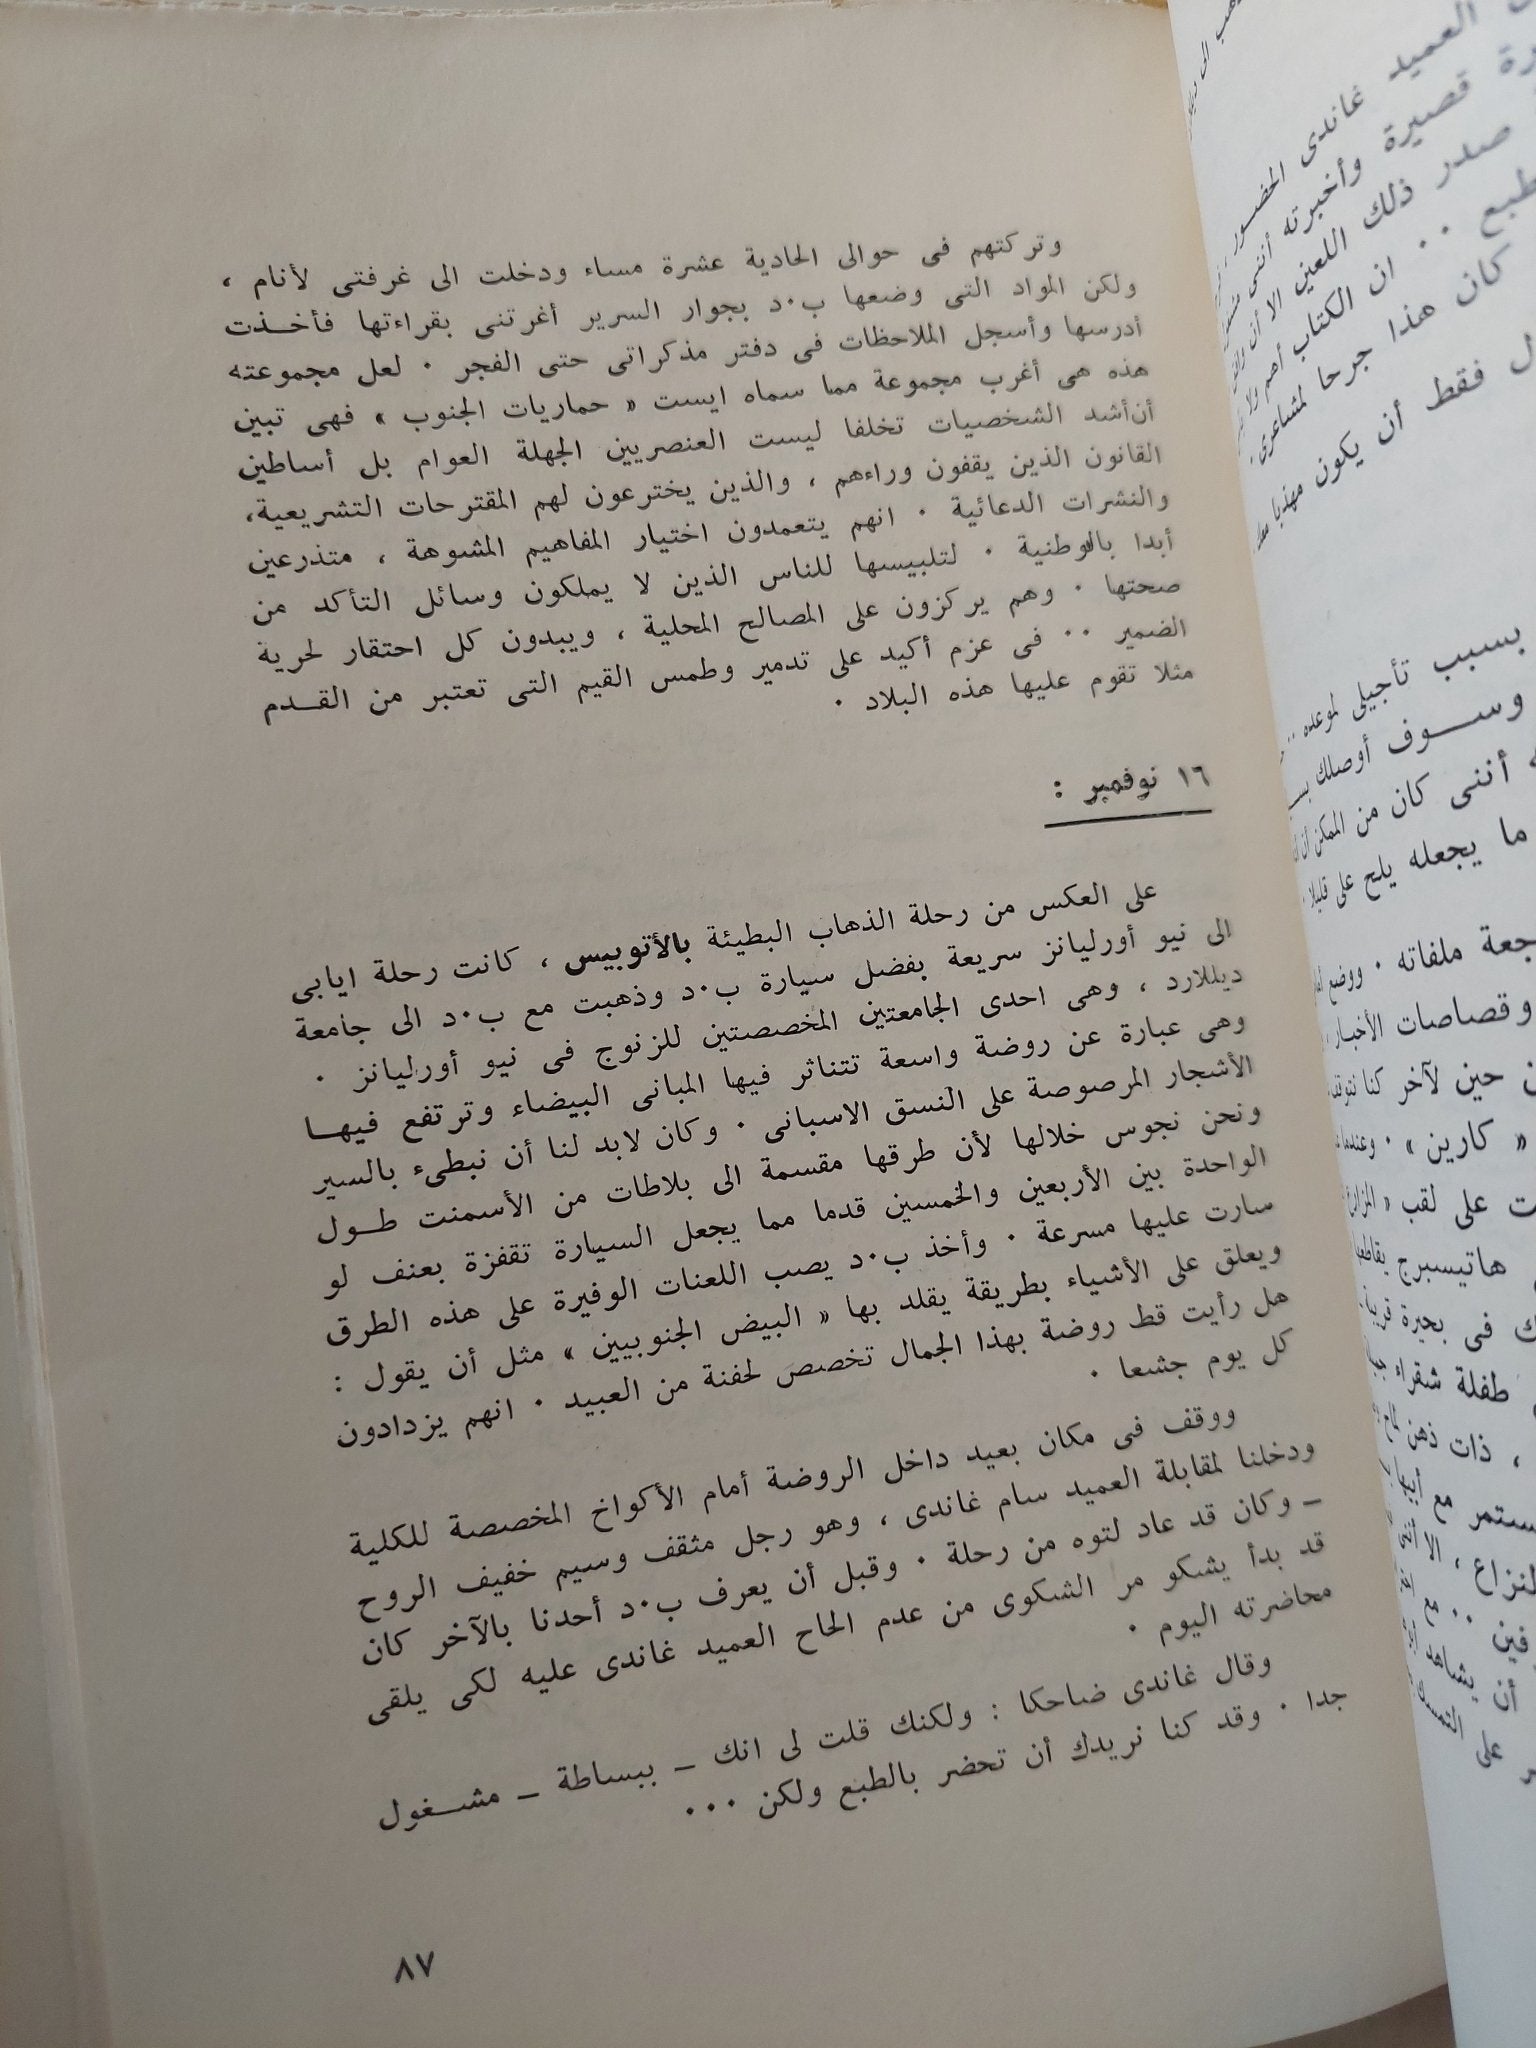 وتركتهم فى حوالى الحادية عشرة مساء ودخلت الى غرفتى لأنام ،
ولكن المواد التى وضعها ب٠د بجوار السرير أغرتنى بقراءتها فأخــذت
أدرسها وأسجل الملاحظات فى دفتر مذكراتى حتى الفجر ٠ لعل مجموعته
هذه هى أغرب مجموعة مما سماه ايست « حماريات الجنوب » فهى تبين
أن أشد الشخصيات تخلفا ليست العنصريين الجهلة العوام بل أساطين
القانون الذين يقفون وراءهم ، والذين يخترعون لهم المقترحات التشريعية،
والنشرات الدعائية ٠ انهم يتعمدون اختيار المفاهيم المشبوهة ، متذرعين
أبدا بالوطنية ٠ لتلبيسها للناس الذين لا يملكون وسائل التأكد من
صحتها ٠ وهم يركزون على المصالح المحلية ، ويبدون كل احتقار لحرية
الضمير ٠٠ فى عزم أكيد على تدمير وطمس القيم التى تعتبر من القــدم
مثلا تقوم عليها هذه البلاد ٠
١٦ نوفمبر :
على العكس من رحلة الذهاب البطيئة بالأتوبيس ، كانت رحلة ايابى
الى نيو أورليانز سريعة بفضل سيارة ب٠د وذهبت مع ب٠د الى جامعة
ديللارد ، وهى احدى الجامعتين المخصصتين للزنوج فى نيو أورليانز ٠
وهى عبارة عن روضة واسعة تتناثر فيها المبانى البيضاء وترتفع فيهــا
الأشجار المرصوصة على النسق الاسبانى ٠ وكان لابد لنا أن نبطىء بالسير
ونحن نجوس خلالها لأن طرقها مقسمة الى بلاطات من الأسمنت طــول
الواحدة بين الأربعين والخمسين قدما مما يجعل السيارة تقفزة بعنف لو
سارت عليها مسرعة ٠ وأخذ ب٠د يصب اللعنات الوفيرة على هذه الطرق
ويعلق على الأشياء بطريقة يقلد بها « البيض الجنوبيين » مثل أن يقول :
هل رأيت قط روضة بهذا الجمال تخصص لحفنة من العبيد ٠ انهم يزدادون
كل يوم جشعا ٠
ووقف فى مكان بعيد داخل الروضة أمام الأكواخ المخصصة للكلية
ودخلنا لمقابلة العميد سام غاندى ، وهو رجل مثقف وسيم خفيف الروح
ــ وكان قد عاد لتوه من رحلة ٠ وقبل أن يعرف ب٠د أحدنا بالآخر كان
قد بدأ يشكو مر الشكوى من عدم الحاح العميد غاندى عليه لكى يلقى
محاضرته اليوم ٠
وقال غاندى ضاحكا : ولكنك قلت لى انك ــ ببساطة ــ مشــغول
جدا ٠ وقد كنا نريدك أن تحضر بالطبع ولكن ٠٠٠
٨٧
العميد غاندى الحضور
قصيرة وأخبرته أننى
صدر ذلك اللعين الا أن
٠٠ ان الكتاب أهم ولا
كان هذا جرحا لمشاعرى ٠
فقط أن يكون مهذبا
بسبب تأجيلى لموعده ٠٠
وســوف أوصلك
أننى كان من الممكن أن
ما يجعله يلح على قليلا ٠
ملفاته ٠ ووضع
وقصاصات الأخبار
حين لآخر كنا نتوقف
« كارين » ٠ وعندما
على لقب « المزارع
هاتيسبرج يقاطعها
فى بحيرة قريبة
طفلة شقراء
، ذات ذهن لماح
مع أبيها
، الا أننى
٠٠ مع
أن يشاهد
على التمسك